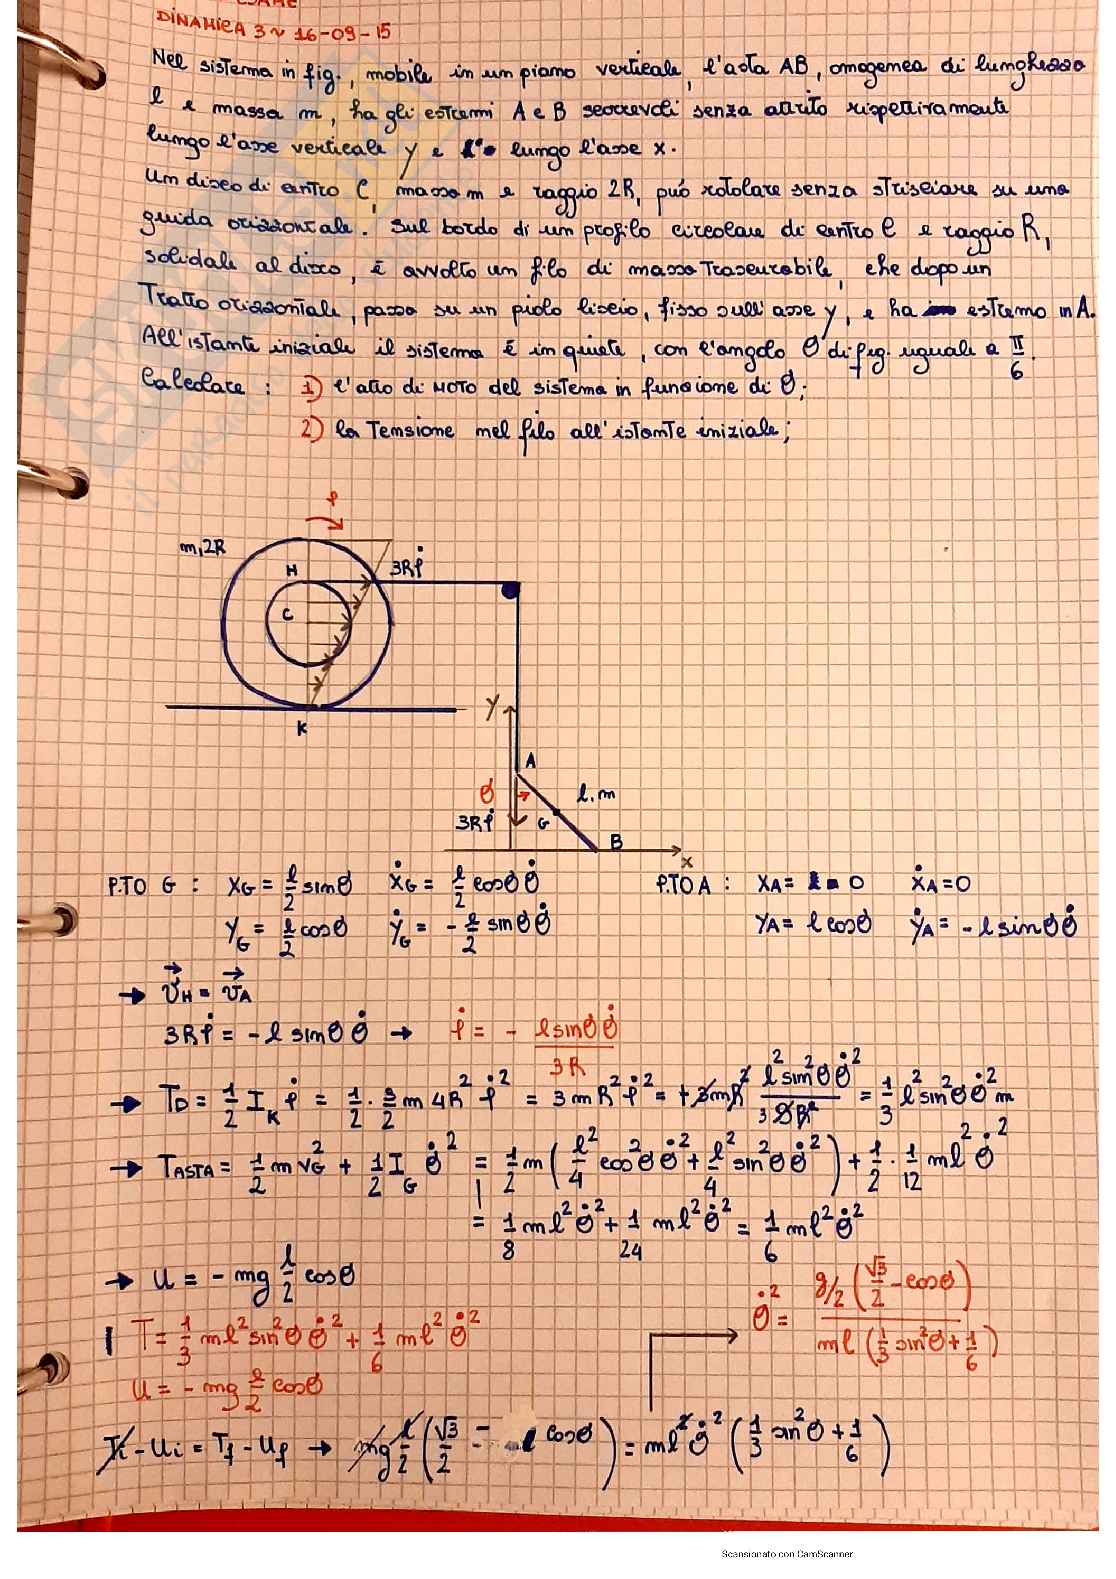 DINAMICA 3 ~ 16-09-15
Nel sistema in fig., mobile in un piano verticale, l'asta AB, omogenea di lunghezza
l e massa m, ha gli estremi A e B scorrevoli senza attrito rispettivamente
lungo l'asse verticale y e lungo l'asse x.
Un disco di centro C, massa m e raggio 2R, può rotolare senza strisciare su una
guida orizzontale. Sul bordo di un profilo circolare di centro C e raggio R,
solidale al disco, è avvolto un filo di massa Trascurabile, che dopo un
Tratto orizzontale, passa su un piolo liscio, fisso sull'asse y, e ha estremo in A.
All'istante iniziale il sistema è in quiete, con l'angolo θ di fig. uguale a π/6.
Calcolare: 1) l'atto di MOTO del sistema in funzione di θ;
2) la Tensione nel filo all'istante iniziale;
φ
m,2R
H
3Rφ̇
C
K
y
A
θ
l, m
3Rφ̇
G
B
x
P.TO G: xG = l/2 sinθ ẋG = l/2 cosθ θ̇ P.TO A: xA = 0 ẋA = 0
yG = l/2 cosθ ẏG = - l/2 sinθ θ̇ yA = l cosθ ẏA = - l sinθ θ̇
→ v⃗H = v⃗A
3Rφ̇ = - l sinθ θ̇ → φ̇ = - l sinθ θ̇ / 3R
→ TD = 1/2 IK φ̇ = 1/2 · 3/2 m 4R² φ̇² = 3mR²φ̇² = + 3mR² l² sin²θ θ̇² / 3 9R² = 1/3 l² sin²θ θ̇² m
→ TASTA = 1/2 m vG² + 1/2 IG θ̇² = 1/2 m (l²/4 cos²θ θ̇² + l²/4 sin²θ θ̇²) + 1/2 · 1/12 ml² θ̇²
= 1/8 ml² θ̇² + 1/24 ml² θ̇² = 1/6 ml² θ̇²
→ U = - mg l/2 cosθ
T = 1/3 ml² sin²θ θ̇² + 1/6 ml² θ̇²
θ̇² = g/2 (√3/2 - cosθ) / ml (1/3 sin²θ + 1/6)
U = - mg l/2 cosθ
Ti - Ui = Tf - Uf → mg l/2 (√3/2 - cosθ) = ml² θ̇² (1/3 sin²θ + 1/6)
Scansionato con CamScanner